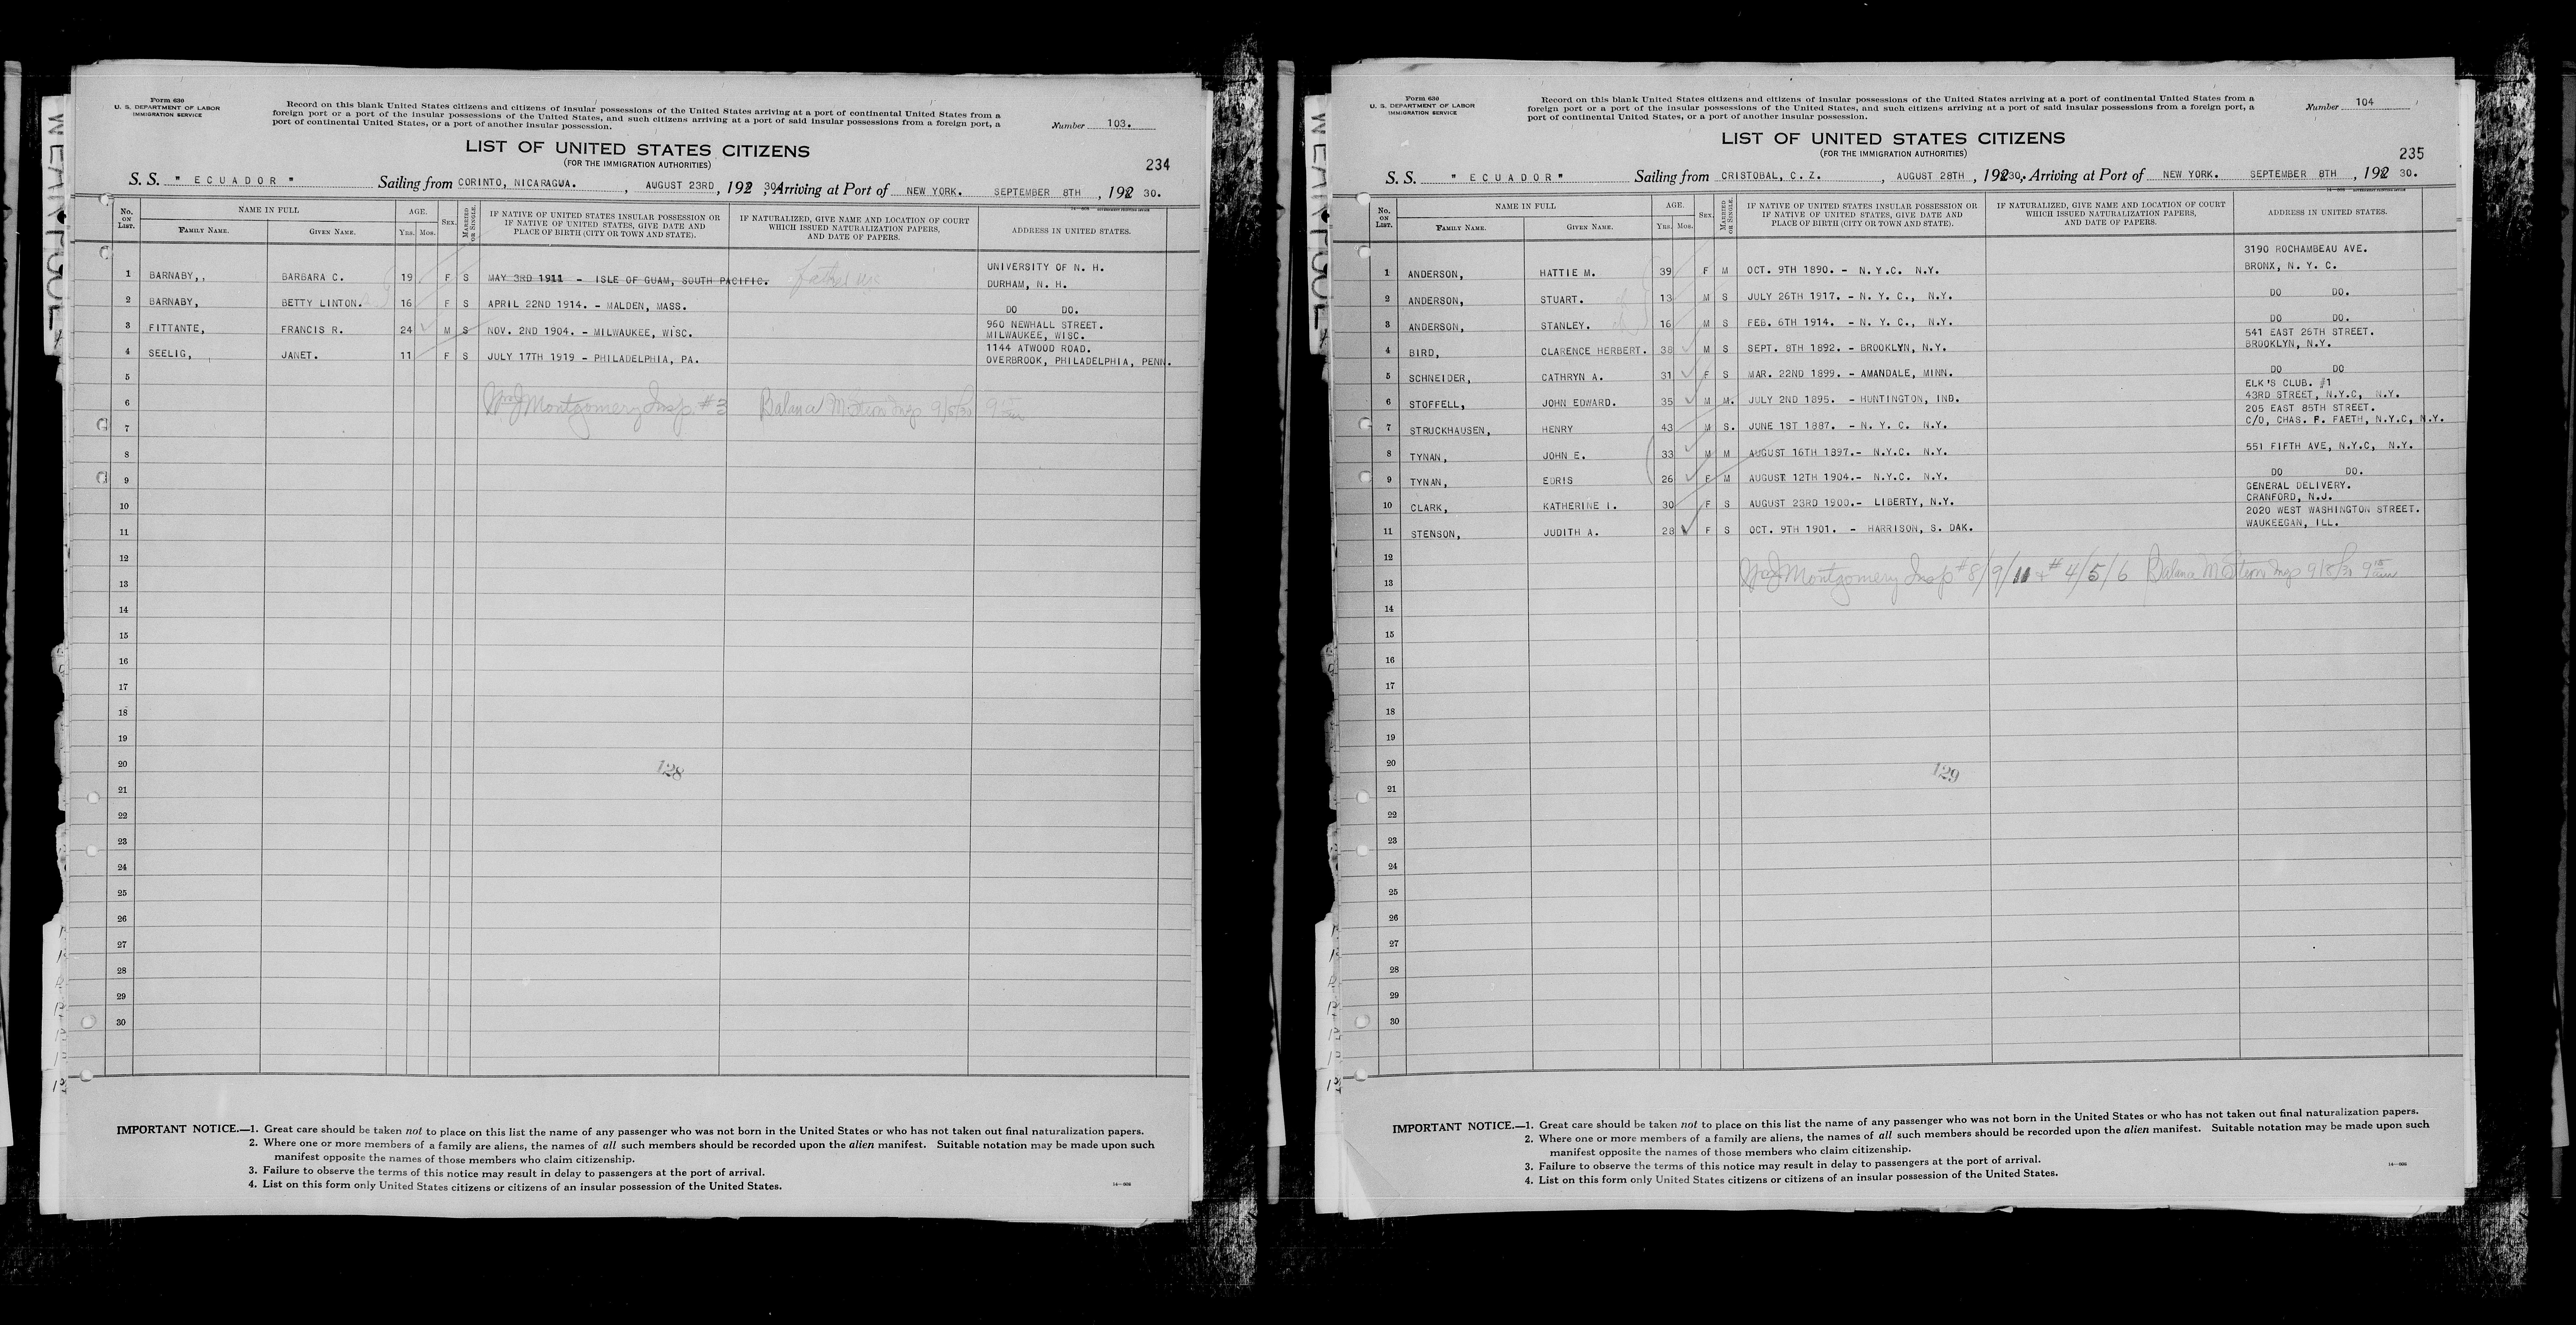 Form 630
U. S. DEPARTMENT OF LABOR
IMMIGRATION SERVICE
Record on this blank United States citizens and citizens of insular possessions of the United States arriving at a port of continental United States from a
foreign port or a port of the insular possessions of the United States, and such citizens arriving at a port of said insular possessions from a foreign port, a
port of continental United States, or a port of another insular possession.
Number 103.
LIST OF UNITED STATES CITIZENS
(FOR THE IMMIGRATION AUTHORITIES)
234
S. S. " ECUADOR " Sailing from CORINTO, NICARAGUA. , AUGUST 23RD, 192 30, Arriving at Port of NEW YORK. SEPTEMBER 8TH , 192 30.
No. ON LIST. NAME IN FULL AGE. SEX. MARRIED OR SINGLE. IF NATIVE OF UNITED STATES INSULAR POSSESSION OR IF NATIVE OF UNITED STATES, GIVE DATE AND PLACE OF BIRTH (CITY OR TOWN AND STATE). IF NATURALIZED, GIVE NAME AND LOCATION OF COURT WHICH ISSUED NATURALIZATION PAPERS, AND DATE OF PAPERS. ADDRESS IN UNITED STATES.
FAMILY NAME. GIVEN NAME. YRS. MOS.
UNIVERSITY OF N. H.
1 BARNABY,, BARBARA C. 19 F S MAY 3RD 1911 - ISLE OF GUAM, SOUTH PACIFIC. DURHAM, N. H.
2 BARNABY, BETTY LINTON. 16 F S APRIL 22ND 1914. - MALDEN, MASS. DO DO.
3 FITTANTE, FRANCIS R. 24 M S NOV. 2ND 1904. - MILWAUKEE, WISC. 960 NEWHALL STREET.
MILWAUKEE, WISC.
4 SEELIG, JANET. 11 F S JULY 17TH 1919 - PHILADELPHIA, PA. 1144 ATWOOD ROAD.
OVERBROOK, PHILADELPHIA, PENN.
5
6 Montgomery Insp #3 9/8/30
7
8
9
10
11
12
13
14
15
16
17
18
19
20 128
21
22
23
24
25
26
27
28
29
30
IMPORTANT NOTICE.—1. Great care should be taken not to place on this list the name of any passenger who was not born in the United States or who has not taken out final naturalization papers.
2. Where one or more members of a family are aliens, the names of all such members should be recorded upon the alien manifest. Suitable notation may be made upon such
manifest opposite the names of those members who claim citizenship.
3. Failure to observe the terms of this notice may result in delay to passengers at the port of arrival.
4. List on this form only United States citizens or citizens of an insular possession of the United States.
Form 630
U. S. DEPARTMENT OF LABOR
IMMIGRATION SERVICE
Record on this blank United States citizens and citizens of insular possessions of the United States arriving at a port of continental United States from a
foreign port or a port of the insular possessions of the United States, and such citizens arriving at a port of said insular possessions from a foreign port, a
port of continental United States, or a port of another insular possession.
Number 104
LIST OF UNITED STATES CITIZENS
(FOR THE IMMIGRATION AUTHORITIES)
235
S. S. " ECUADOR " Sailing from CRISTOBAL, C. Z. , AUGUST 28TH , 192 30, Arriving at Port of NEW YORK. SEPTEMBER 8TH , 192 30.
No. ON LIST. NAME IN FULL AGE. SEX. MARRIED OR SINGLE. IF NATIVE OF UNITED STATES INSULAR POSSESSION OR IF NATIVE OF UNITED STATES, GIVE DATE AND PLACE OF BIRTH (CITY OR TOWN AND STATE). IF NATURALIZED, GIVE NAME AND LOCATION OF COURT WHICH ISSUED NATURALIZATION PAPERS, AND DATE OF PAPERS. ADDRESS IN UNITED STATES.
FAMILY NAME. GIVEN NAME. YRS. MOS.
3190 ROCHAMBEAU AVE.
1 ANDERSON, HATTIE M. 39 F M OCT. 9TH 1890. - N. Y.C. N.Y. BRONX, N. Y. C.
2 ANDERSON, STUART. 13 M S JULY 26TH 1917. - N. Y. C., N.Y. DO DO.
3 ANDERSON, STANLEY. 16 M S FEB. 6TH 1914. - N. Y. C., N.Y. DO DO.
541 EAST 26TH STREET.
4 BIRD, CLARENCE HERBERT. 38 M S SEPT. 8TH 1892. - BROOKLYN, N.Y. BROOKLYN, N.Y.
5 SCHNEIDER, CATHRYN A. 31 F S MAR. 22ND 1899. - AMANDALE, MINN. DO DO
ELK'S CLUB. #1
6 STOFFELL, JOHN EDWARD. 35 M M. JULY 2ND 1895. - HUNTINGTON, IND. 43RD STREET, N.Y.C, N.Y.
205 EAST 85TH STREET.
7 STRUCKHAUSEN, HENRY 43 M S. JUNE 1ST 1887. - N. Y. C. N.Y. C/O, CHAS. F. FAETH, N.Y.C, N.Y.
8 TYNAN, JOHN E. 33 M M AUGUST 16TH 1897.- N.Y.C. N.Y. 551 FIFTH AVE, N.Y.C, N.Y.
9 TYNAN, EURIS 26 F M AUGUST 12TH 1904.- N.Y.C. N.Y. DO DO.
GENERAL DELIVERY.
10 CLARK, KATHERINE I. 30 F S AUGUST 23RD 1900.- LIBERTY, N.Y. CRANFORD, N.J.
2020 WEST WASHINGTON STREET.
11 STENSON, JUDITH A. 28 F S OCT. 9TH 1901. - HARRISON, S. DAK. WAUKEEGAN, ILL.
12
13 Montgomery Insp #8/9/11 + #4/5/6 9/8/30
14
15
16
17
18
19
20 129
21
22
23
24
25
26
27
28
29
30
IMPORTANT NOTICE.—1. Great care should be taken not to place on this list the name of any passenger who was not born in the United States or who has not taken out final naturalization papers.
2. Where one or more members of a family are aliens, the names of all such members should be recorded upon the alien manifest. Suitable notation may be made upon such
manifest opposite the names of those members who claim citizenship.
3. Failure to observe the terms of this notice may result in delay to passengers at the port of arrival.
4. List on this form only United States citizens or citizens of an insular possession of the United States.